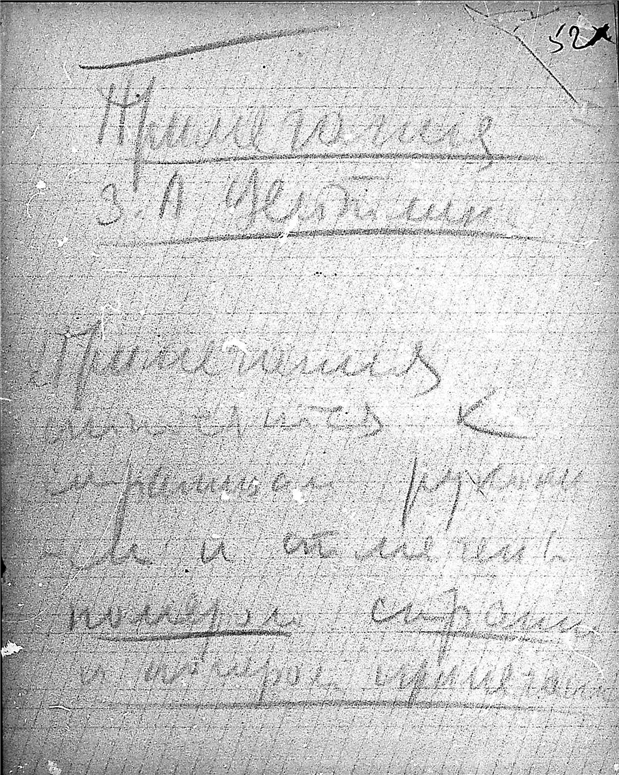 52
Примечания
З. А
Примечания
относятся к
страницам рукопи
сей и отмечены
номером страни
и номером примечани